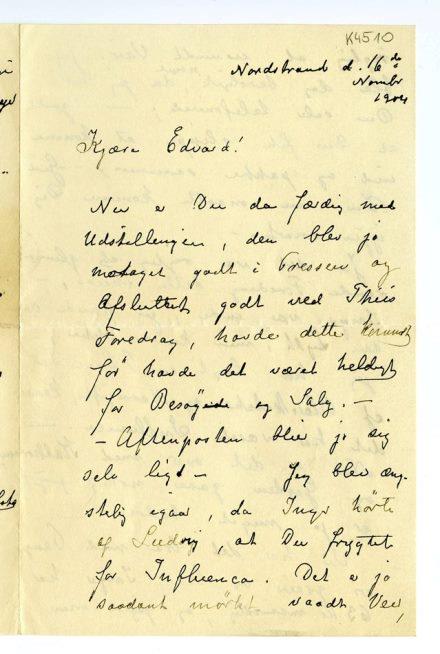 K4510
Nordstrand d. 16 de
Novbr
1904
Kjære Edvard!
Nu er Du da færdig med
Udstillingen, den blev jo
motaget godt i Pressen og
Afsluttet godt ved Thiis
Foredrag, havde dette kommet
før havde det været heldigt
for Besøget og Salg. —
— Aftenposten blir jo sig
selv ligt — Jeg blev æng-
stelig igaar, da Inger hørte
af Ludvig, at Du frygtet
for Influenca. Det er jo
saadant mørkt vaadt Veir,